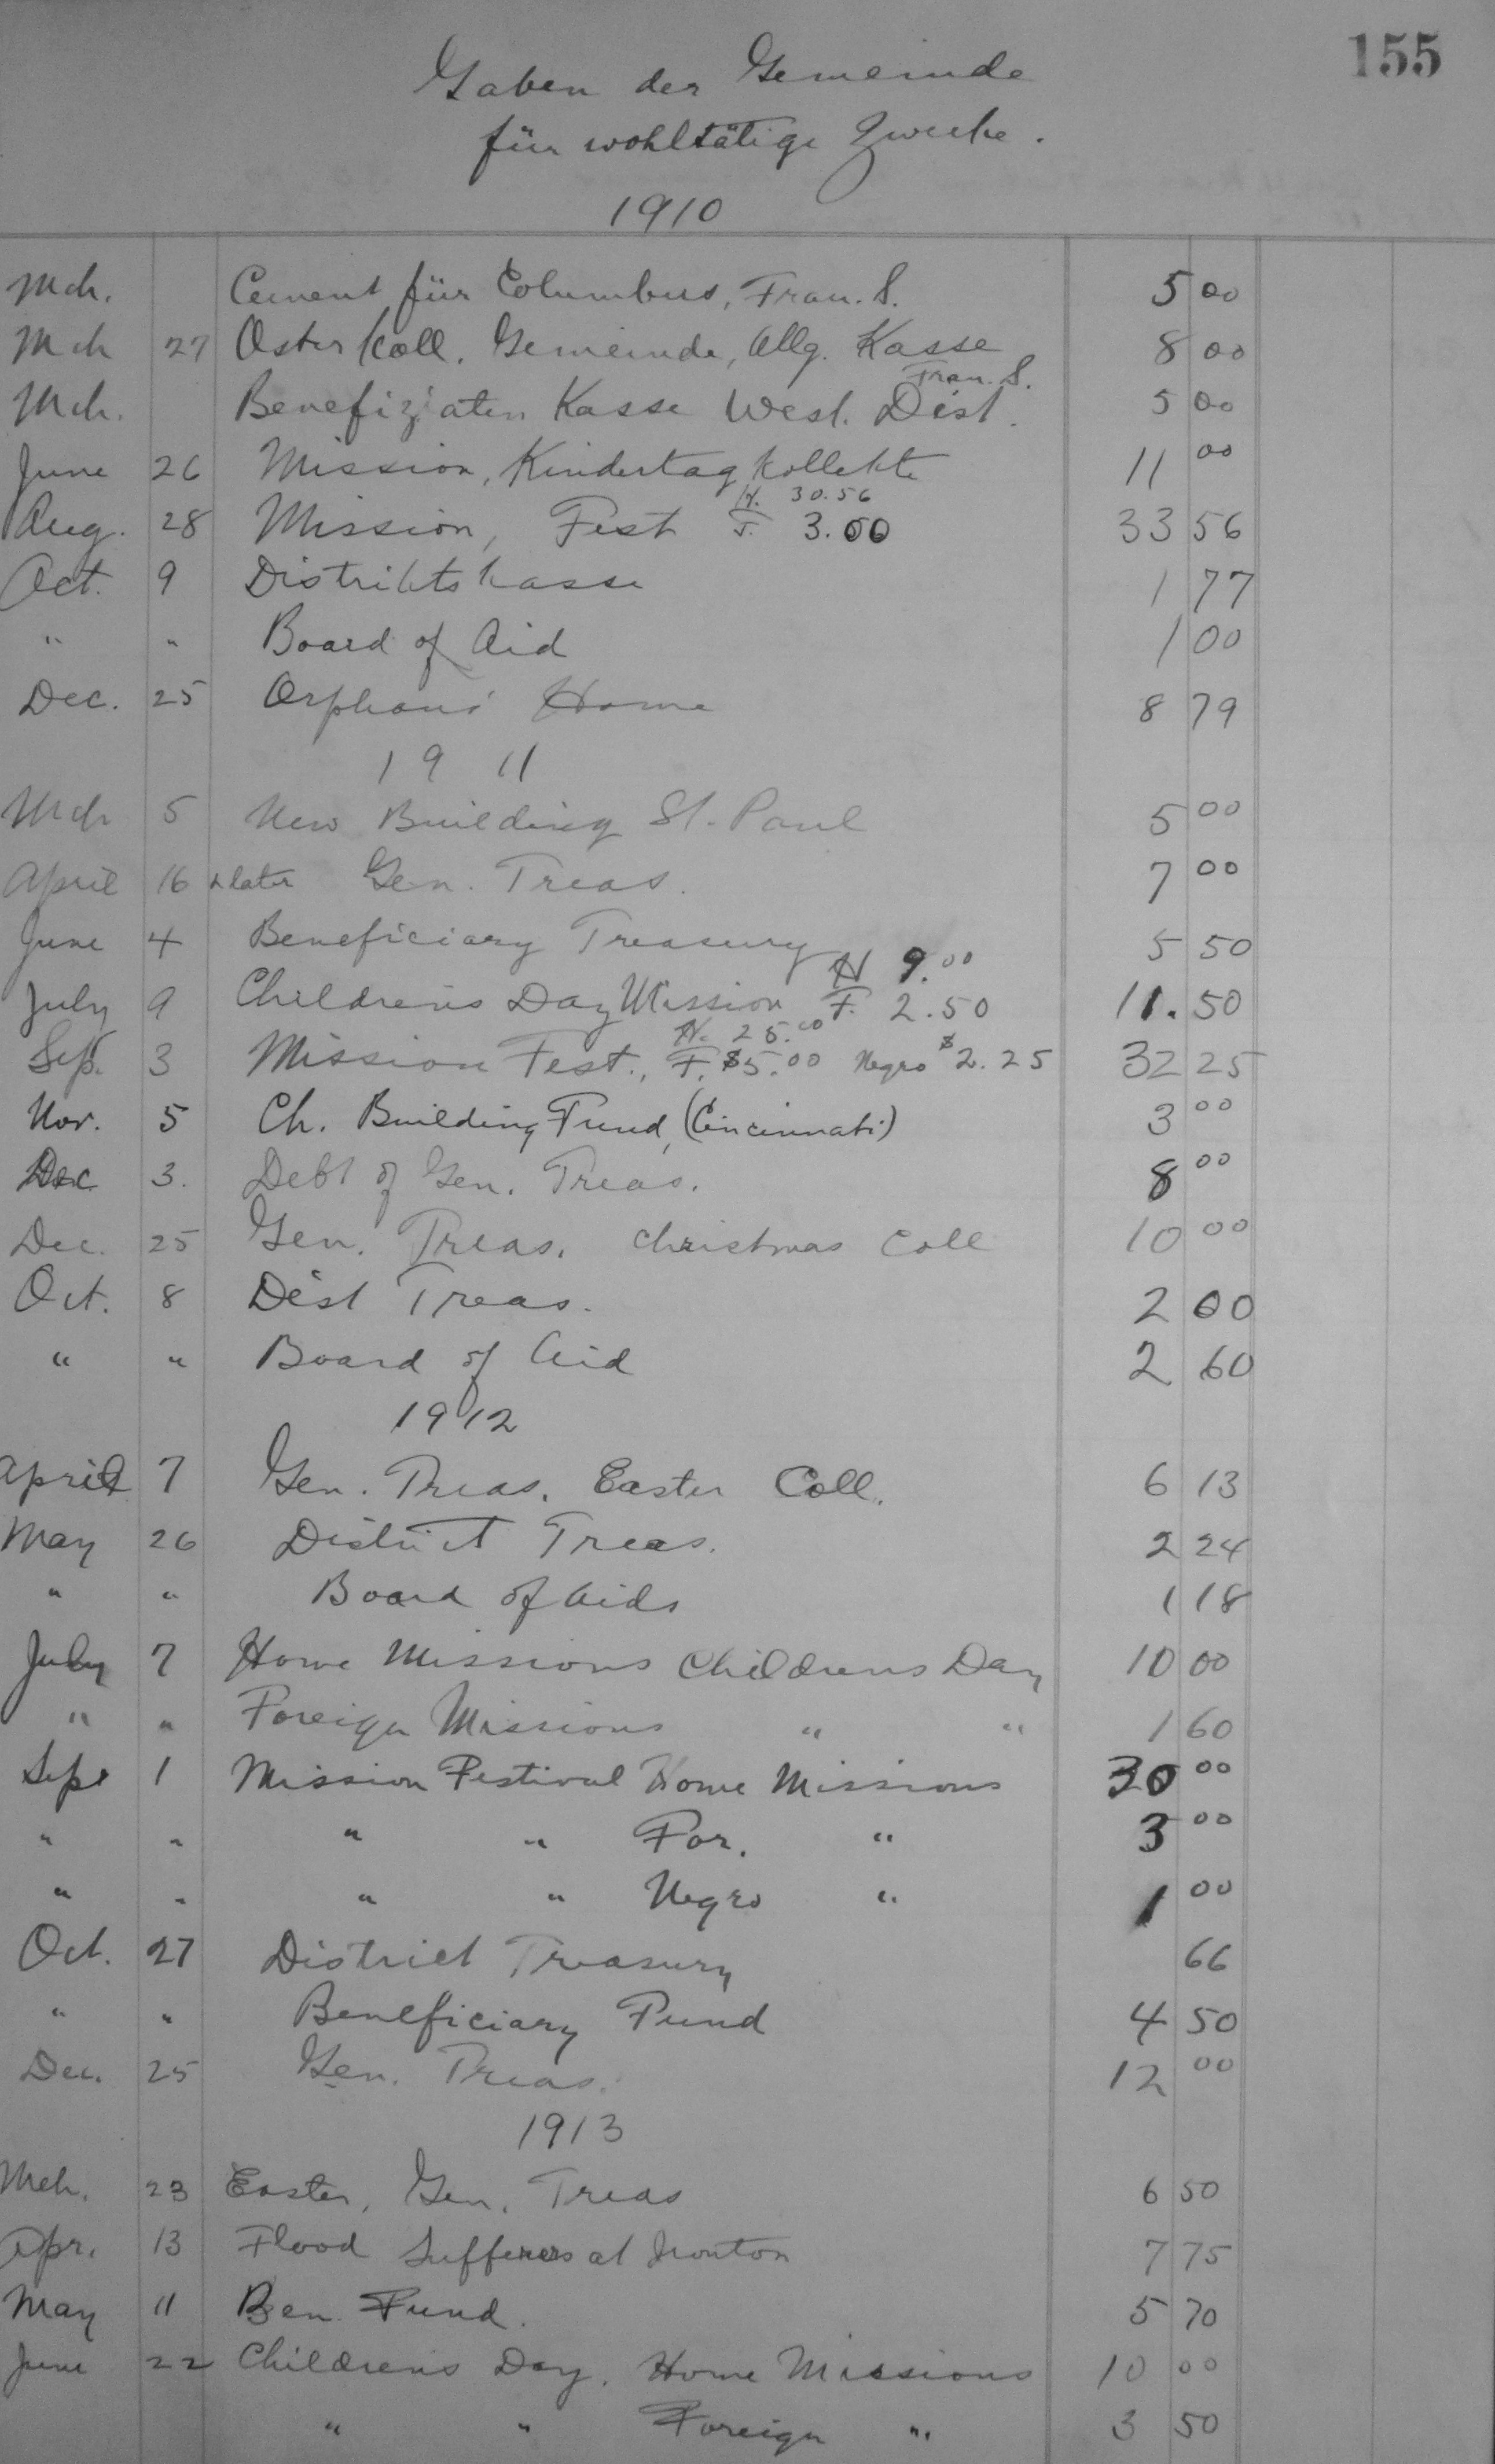 155
Gaben der Gemeinde
für wohltätige Zwecke.
1910
Mch. Cement für Columbus, Frau. S. 5 00
Mch 27 Oster Koll. Gemeinde, Allg. Kasse 8 00
Frau. S.
Mch. Benefiziaten Kasse West. Dist. 5 00
June 26 Mission, Kindertag Kollekte 11 00
H. 30.56
Aug. 28 Mission, Fest F. 3.00 33 56
Oct. 9 Distriktskasse 1 77
" " Board of Aid 1 00
Dec. 25 Orphans' Home 8 79
1911
Mch 5 New Building St. Paul 5 00
April 16 & later Gen. Treas. 7 00
June 4 Beneficiary Treasury 5 50
H 9.00
July 9 Children's Day Mission F. 2.50 11.50
H. 25.00
Sep. 3 Mission Fest., F. $5.00 Negro $2.25 32 25
Nov. 5 Ch. Building Fund, (Cincinnati) 3 00
Dec 3. Debt of Gen. Treas. 8 00
Dec. 25 Gen. Treas. Christmas Coll 10 00
Oct. 8 Dist Treas. 2 00
" " Board of Aid 2 60
1912
April 7 Gen. Treas. Easter Coll. 6 13
May 26 District Treas. 2 24
" " Board of Aids 1 18
July 7 Home Missions Childrens Day 10 00
" " Foreign Missions " " 1 60
Sept 1 Mission Festival Home Missions 30 00
" " " " For. " 3 00
" " " " Negro " 1 00
Oct. 27 District Treasury 66
" " Beneficiary Fund 4 50
Dec. 25 Gen. Treas. 12 00
1913
Mch. 23 Easter, Gen. Treas 6 50
Apr. 13 Flood Sufferers at Ironton 7 75
May 11 Ben Fund. 5 70
June 22 Children's Day. Home Missions 10 00
" " Foreign " 3 50